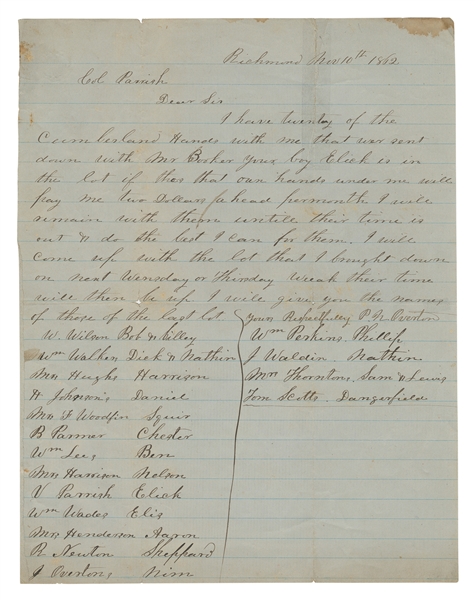 Richmond Nov 10th 1862
Col Parrish
Dear Sir
I have twenty of the
Cumberland Hands with me that war sent
down with Mr Booker your boy Elick is in
the lot if thos that own hands under me will
pay me two Dollars pr head per month I will
remain with theme untile their time is
out & do the best I can for them. I will
come up with the lot that I brought down
on next Wensday or Thursday Weeak their time
will then be up I will give you the names
of those of the last lot
W. Wilson Bob & Lilley
Wm Walker Dick & Nathin
Mrs Hughs Harrison
H Johnson's Daniel
Mrs F Woodfin Squir
B Parmer Chester
Wm Lees Ben
Mrs Harrison Nelson
V Parrish Elick
Wm Wades Elis
Mrs Henderson Aaron
R Newton Sheppard
J Overtons Nim
Yours Respectfully P. N. Overton
Wm Perkins Phillip
J Waldin Nathin
Mrs Thorntons, Sam & Lewis
Tom Scotts. Dangerfield